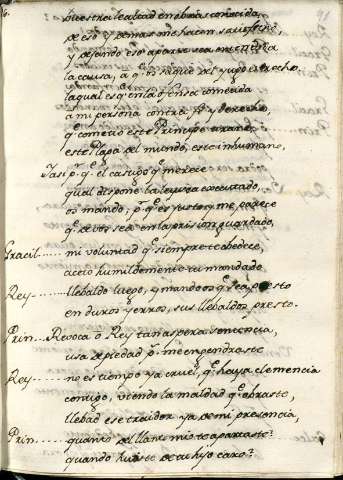 vuestra lealtad en obras conocida,
de eso y de mas one hacen
y dejando eso aparte sea entendida
la causa, a q̃ os saque del yugo derecho,
la qual es q̃ en la ofensa cometida
a mi persona contra fe y derecho,
q̃ cometio este Principe tirano,
este Papa del mundo, este inhumano,
Y asi p.r q̃ el castigo q̃ merece
qual dispone la ley sea executado,
os mando, p.r q̃ es justo y me parece
q̃ de vos sea en la prision guardado,
Gracil..... mi voluntad q̃ siempre te obedece,
aceto humildemente tu mandado
Rey..... llebaldo luego, y mandoos q̃ sea puesto
en duros yerros, sus llebaldo presto.
Prin... Revoca o Rey tan aspera sentencia,
usa de piedad p.s me engendraste
Rey..... no es tiempo ya cruel, q̃ haya clemencia
contigo, viendo la maldad q̃ obraste,
llebad ese traidor ya de mi presencia,
Prin..... quanto del llanto mio te apartaste?
quando huiste de tu hijo caro?